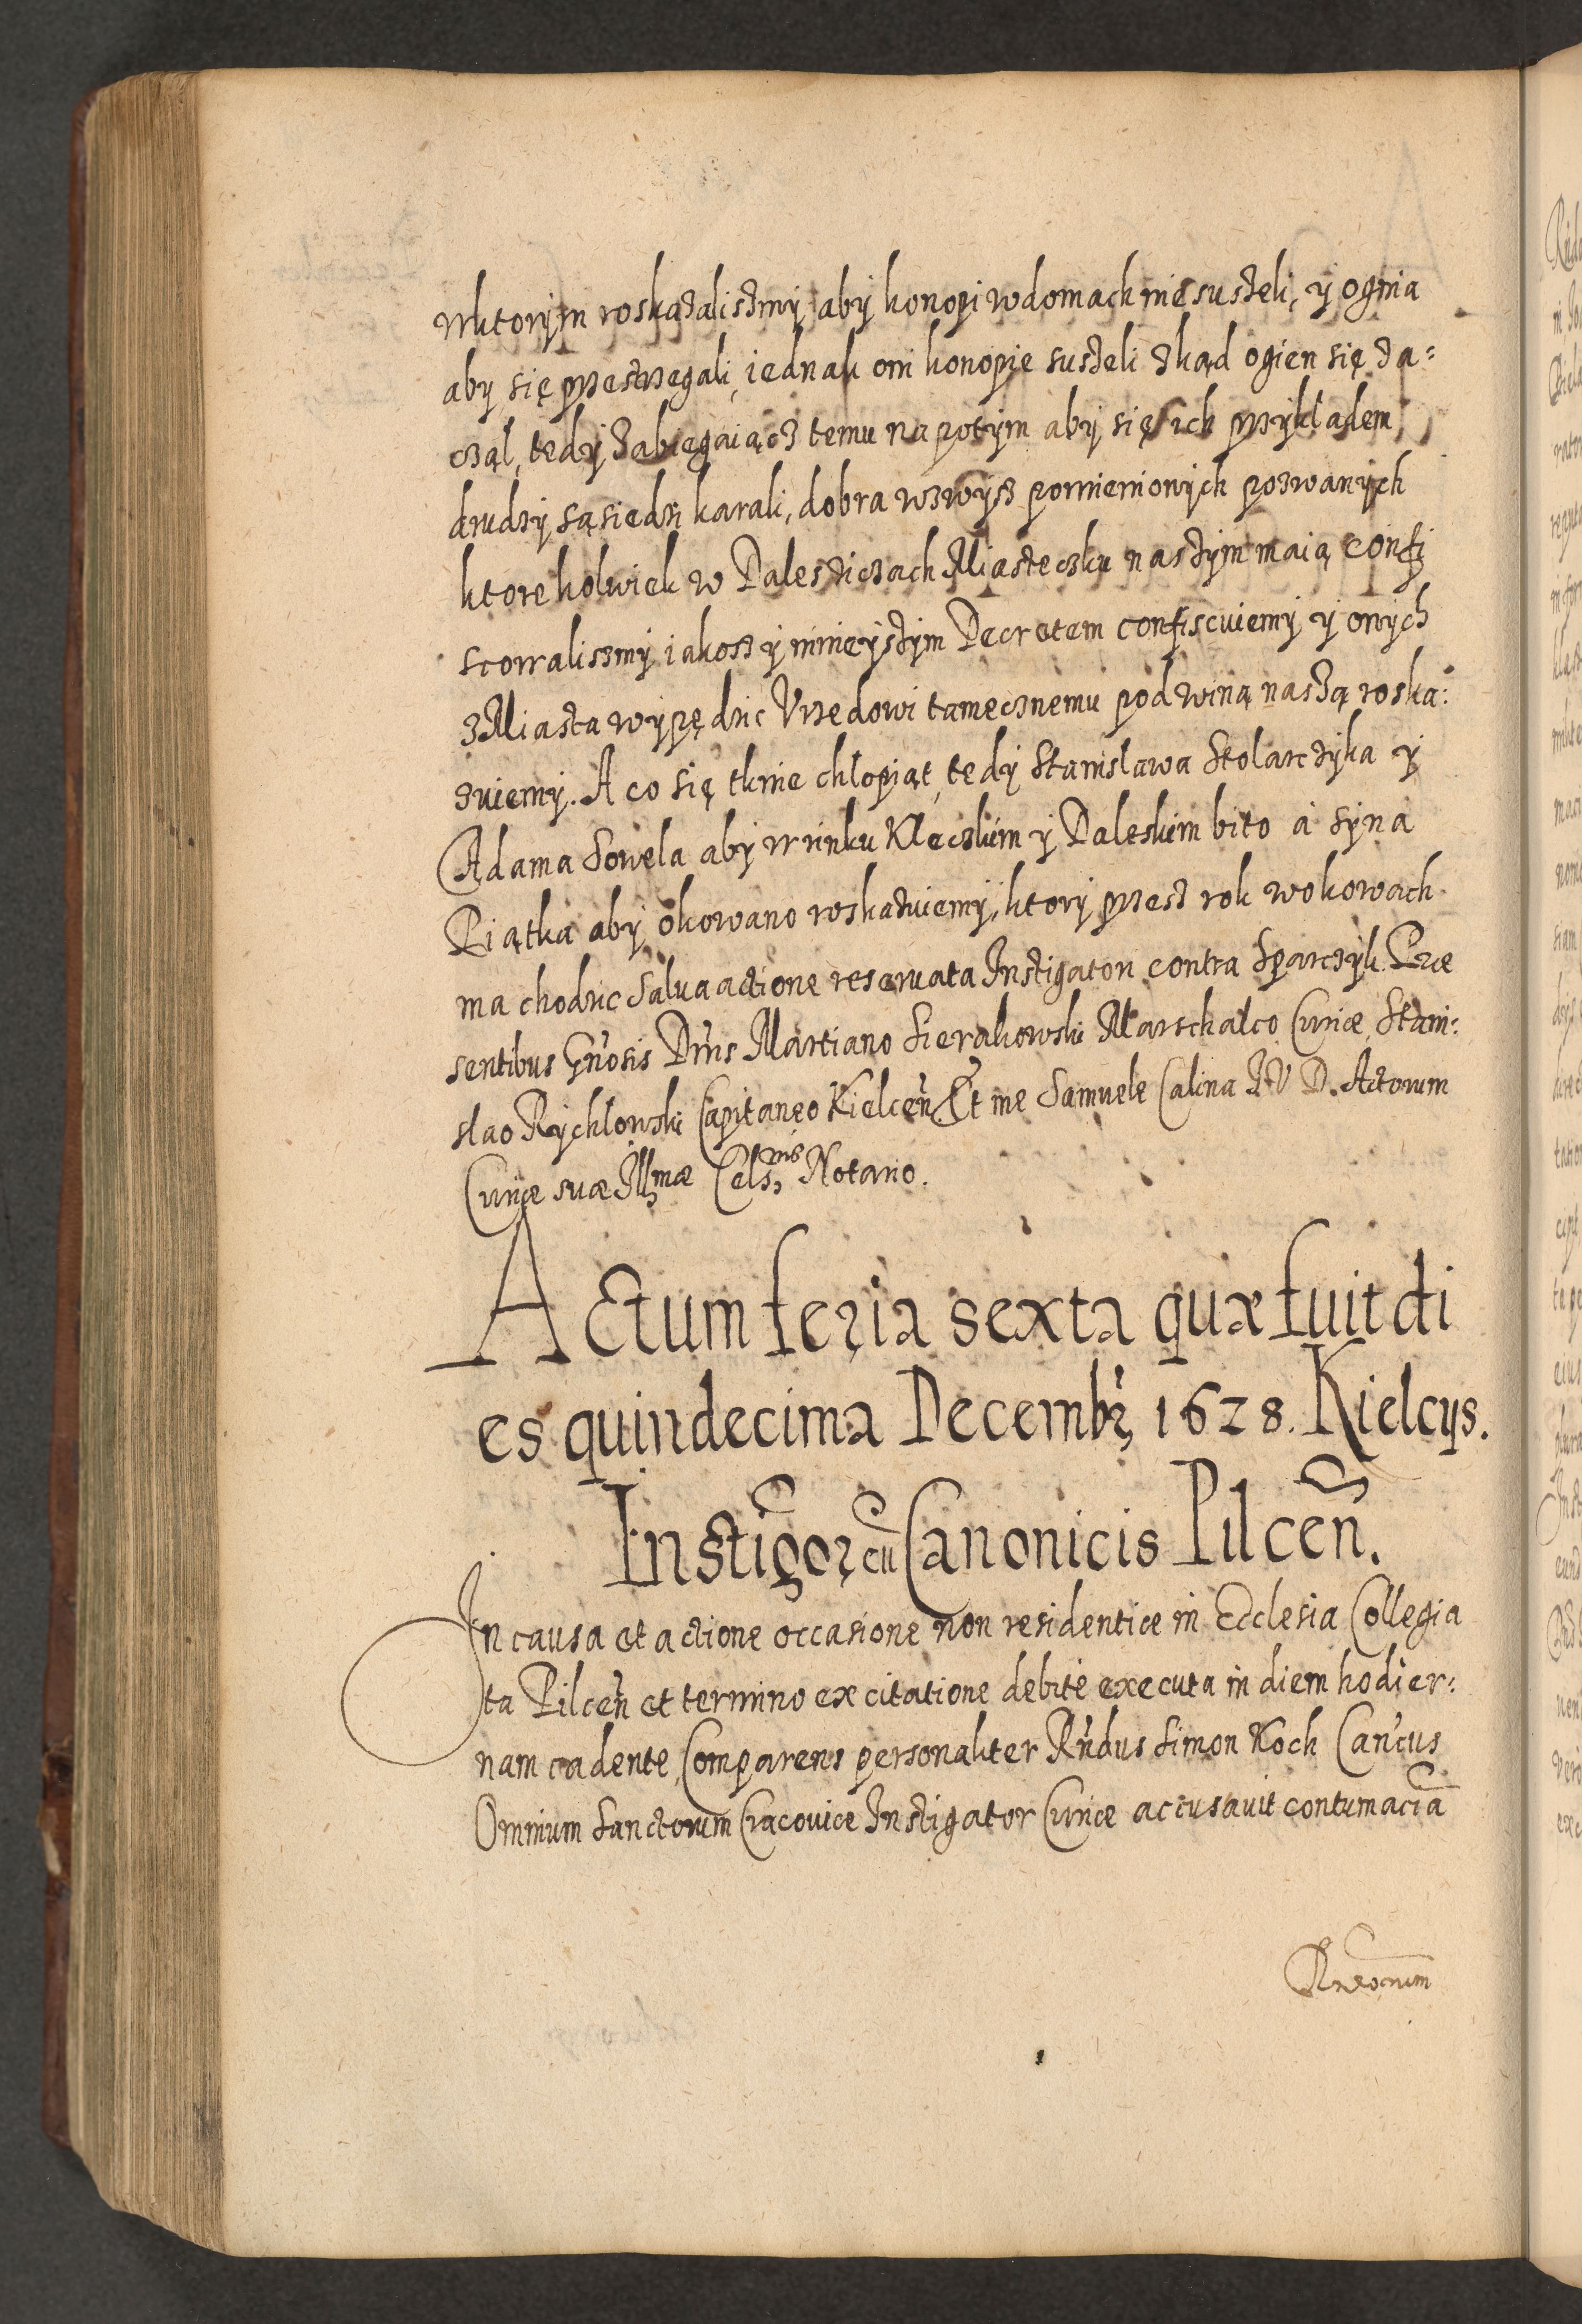 wktorym roskazalismy aby konopi w domach nie suszeli, y ognia
aby się przestrzegali, iednak oni konopie suszeli skąd ogien się za=
czął, tedy zabiegaiącz temu na potym aby się ich przykładem
drudzy sąsiedzi karali, dobra wzwysz pomienionych pozwanych
ktorekolwiek w Daleszicach Miasteczku naszym maią confi
scowalismy iakosz y ninieyszym Decretem confiscuiemy y onych
z Miasta wypędzic Vrzedowi tamecznemu pod winą naszą roska=
zuiemy. A co się tknie chłopiąt, tedy Stanisława Stolarczyka y
Adama Sowela aby w rinku Kleczkim y Daleskim bito à syna
Piątka aby okowano roskazuiemy, ktory przesz rok w okowach
ma chodzic salua actione reseruata Instigatori contra Sparczyk. Præ
sentibus Gn̄osis Dn̄is Martiano Sierakowski Marschalco Curiæ, Stani=
slao Rychlowski Capitaneo Kielcen̄ Et me Samuele Calina I V D. Actorum
Curiæ suæ Illmæ Cels, nis Notario.
Actum feria sexta quæ fuit di
es quindecima Decembr, 1628. Kielcijs.
Instigor cū Canonicis Pilcen̄.
In causa et actione occasione non residentiæ in Ecclesia Collegia
ta Pilcen̄ et termino ex citatione debitè executa in diem hodier=
nam cadente, Comparens personaliter Rn̄dus Simon Koch Can̄cus
Omnium Sanctorum Cracouiæ Instigator Curiæ accusauit contumaciā